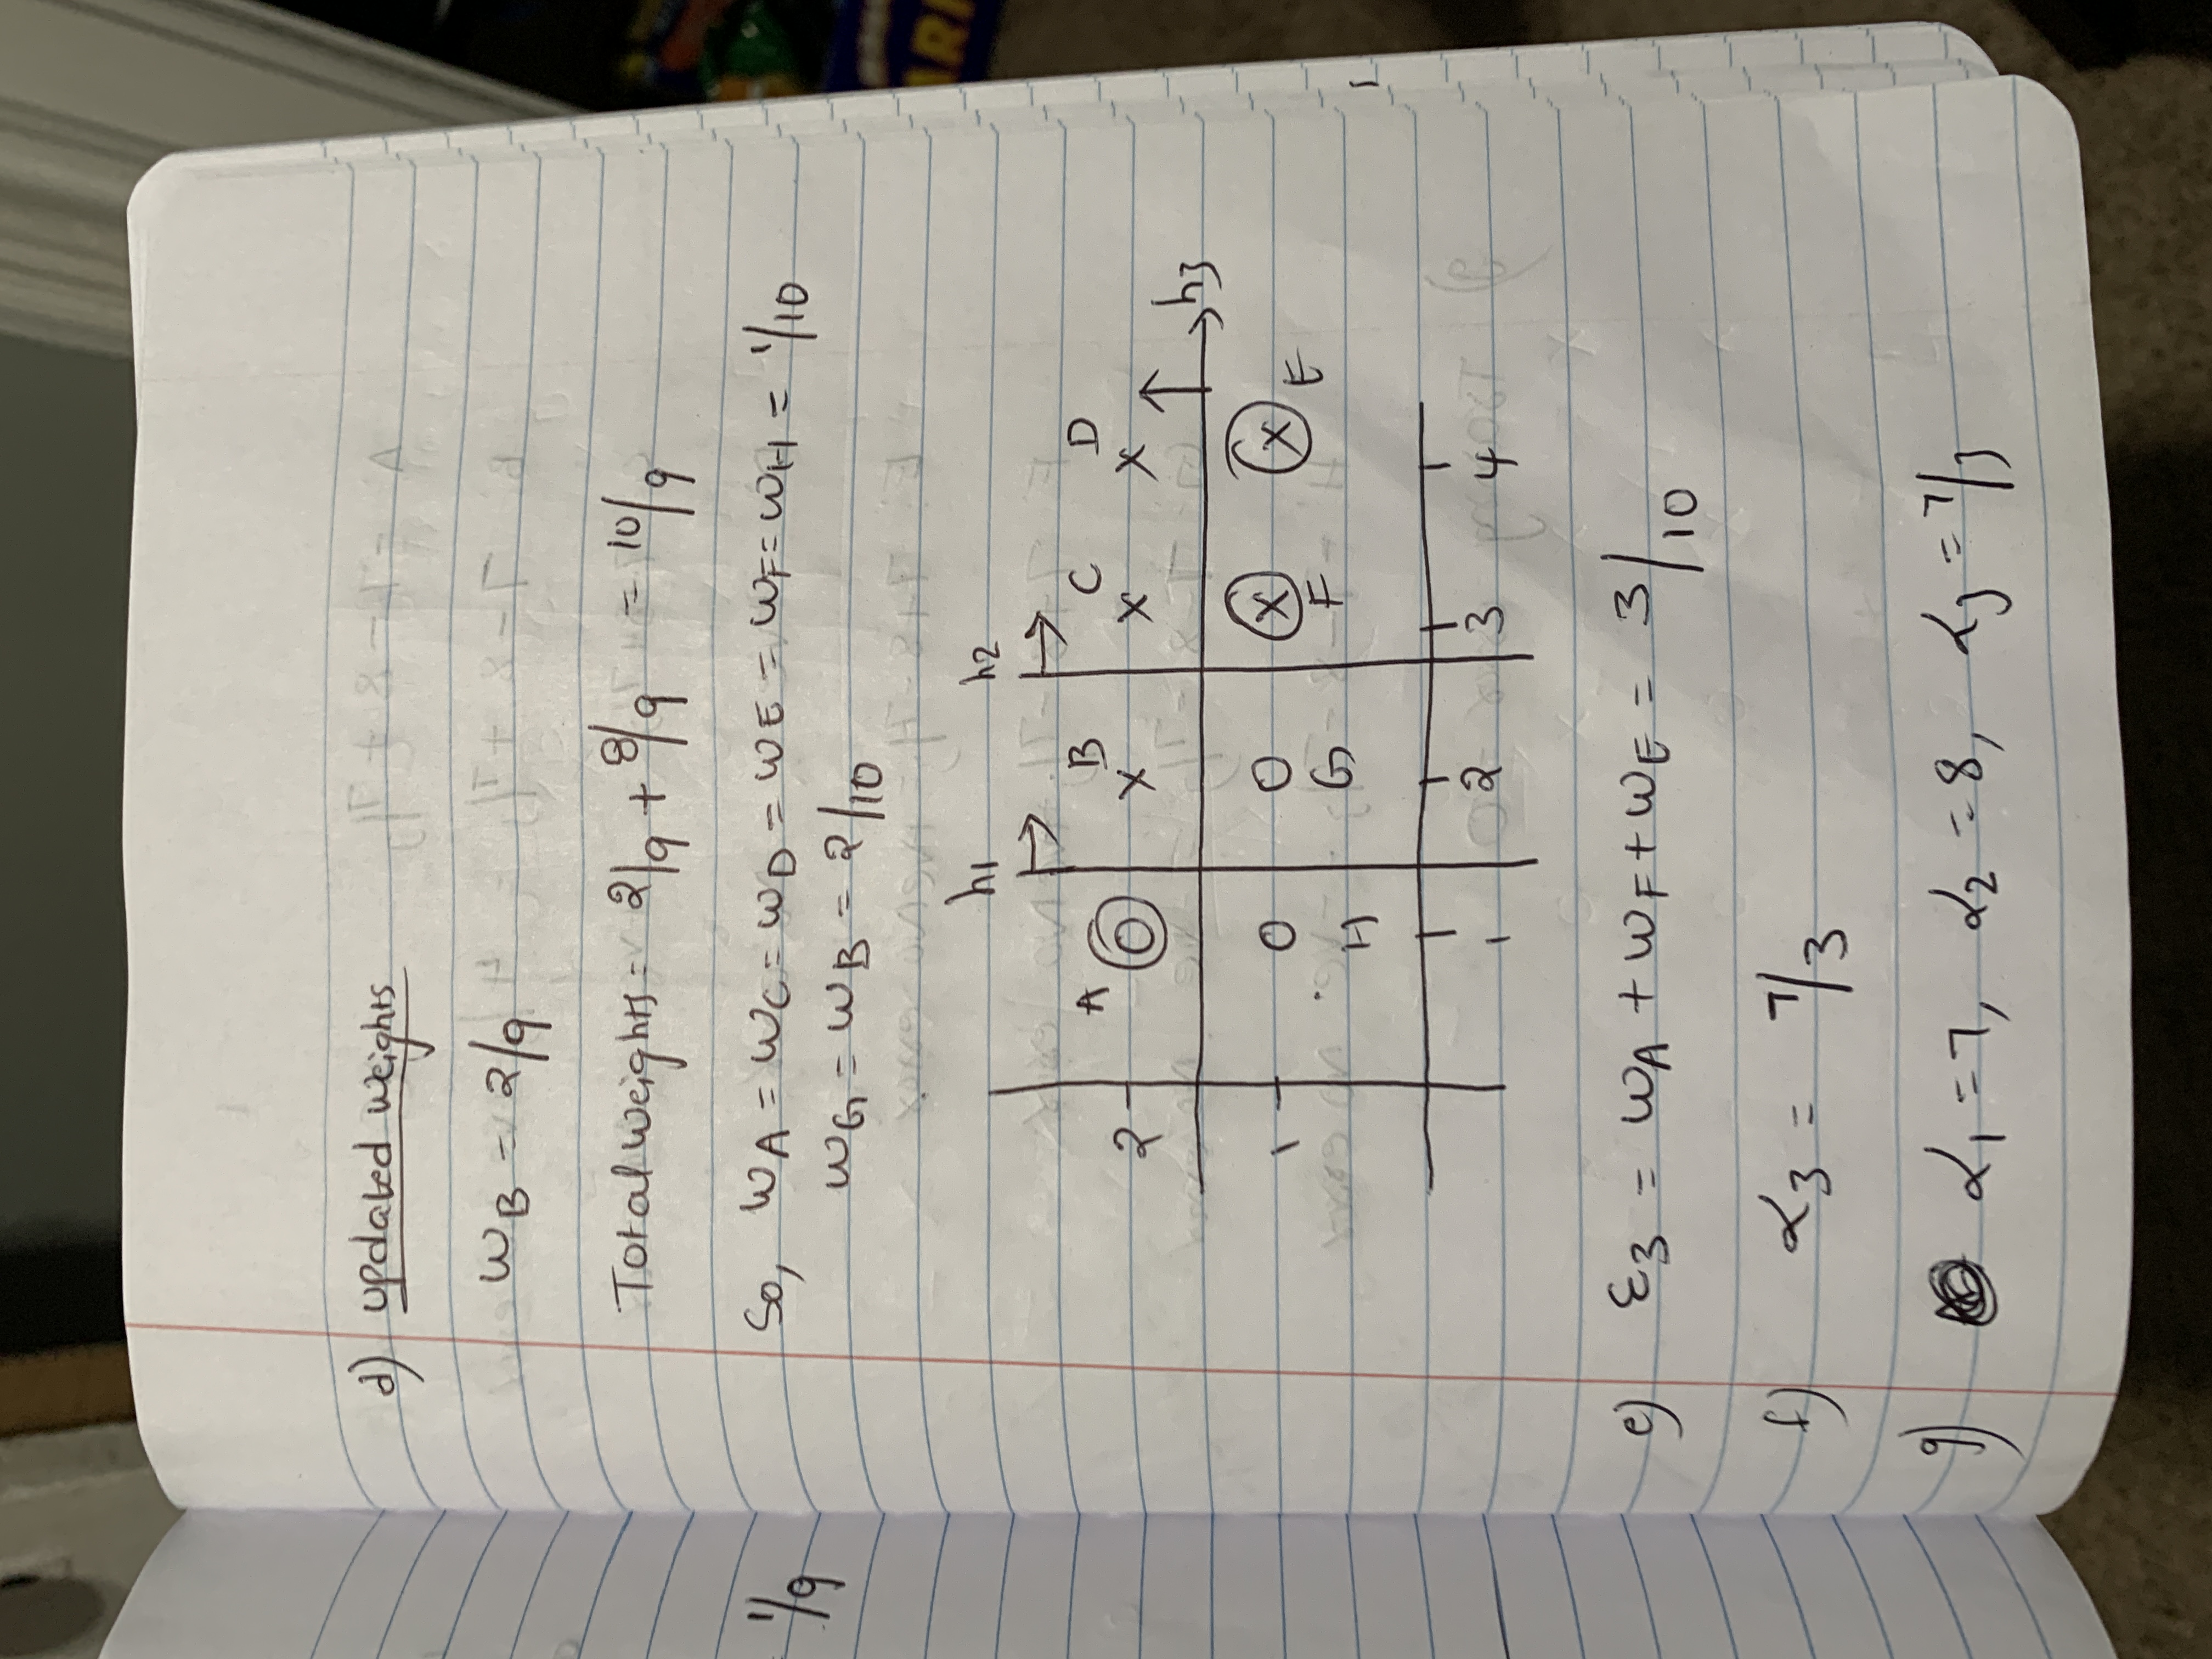 1/9
d) updated weights
WB = 2/9
Total weights = 2/9 + 8/9 = 10/9
So, WA = WC = WD = WE = WF = WH = 1/10
WG = WB = 2/10
h1 h2
A B C D
2 O X X X
h3
1 O O X X E
H G F
1 2 3 4
e) ε3 = WA + WF + WE = 3/10
f) α3 = 7/3
g) α1 = 7, α2 = 8, α3 = 7/3